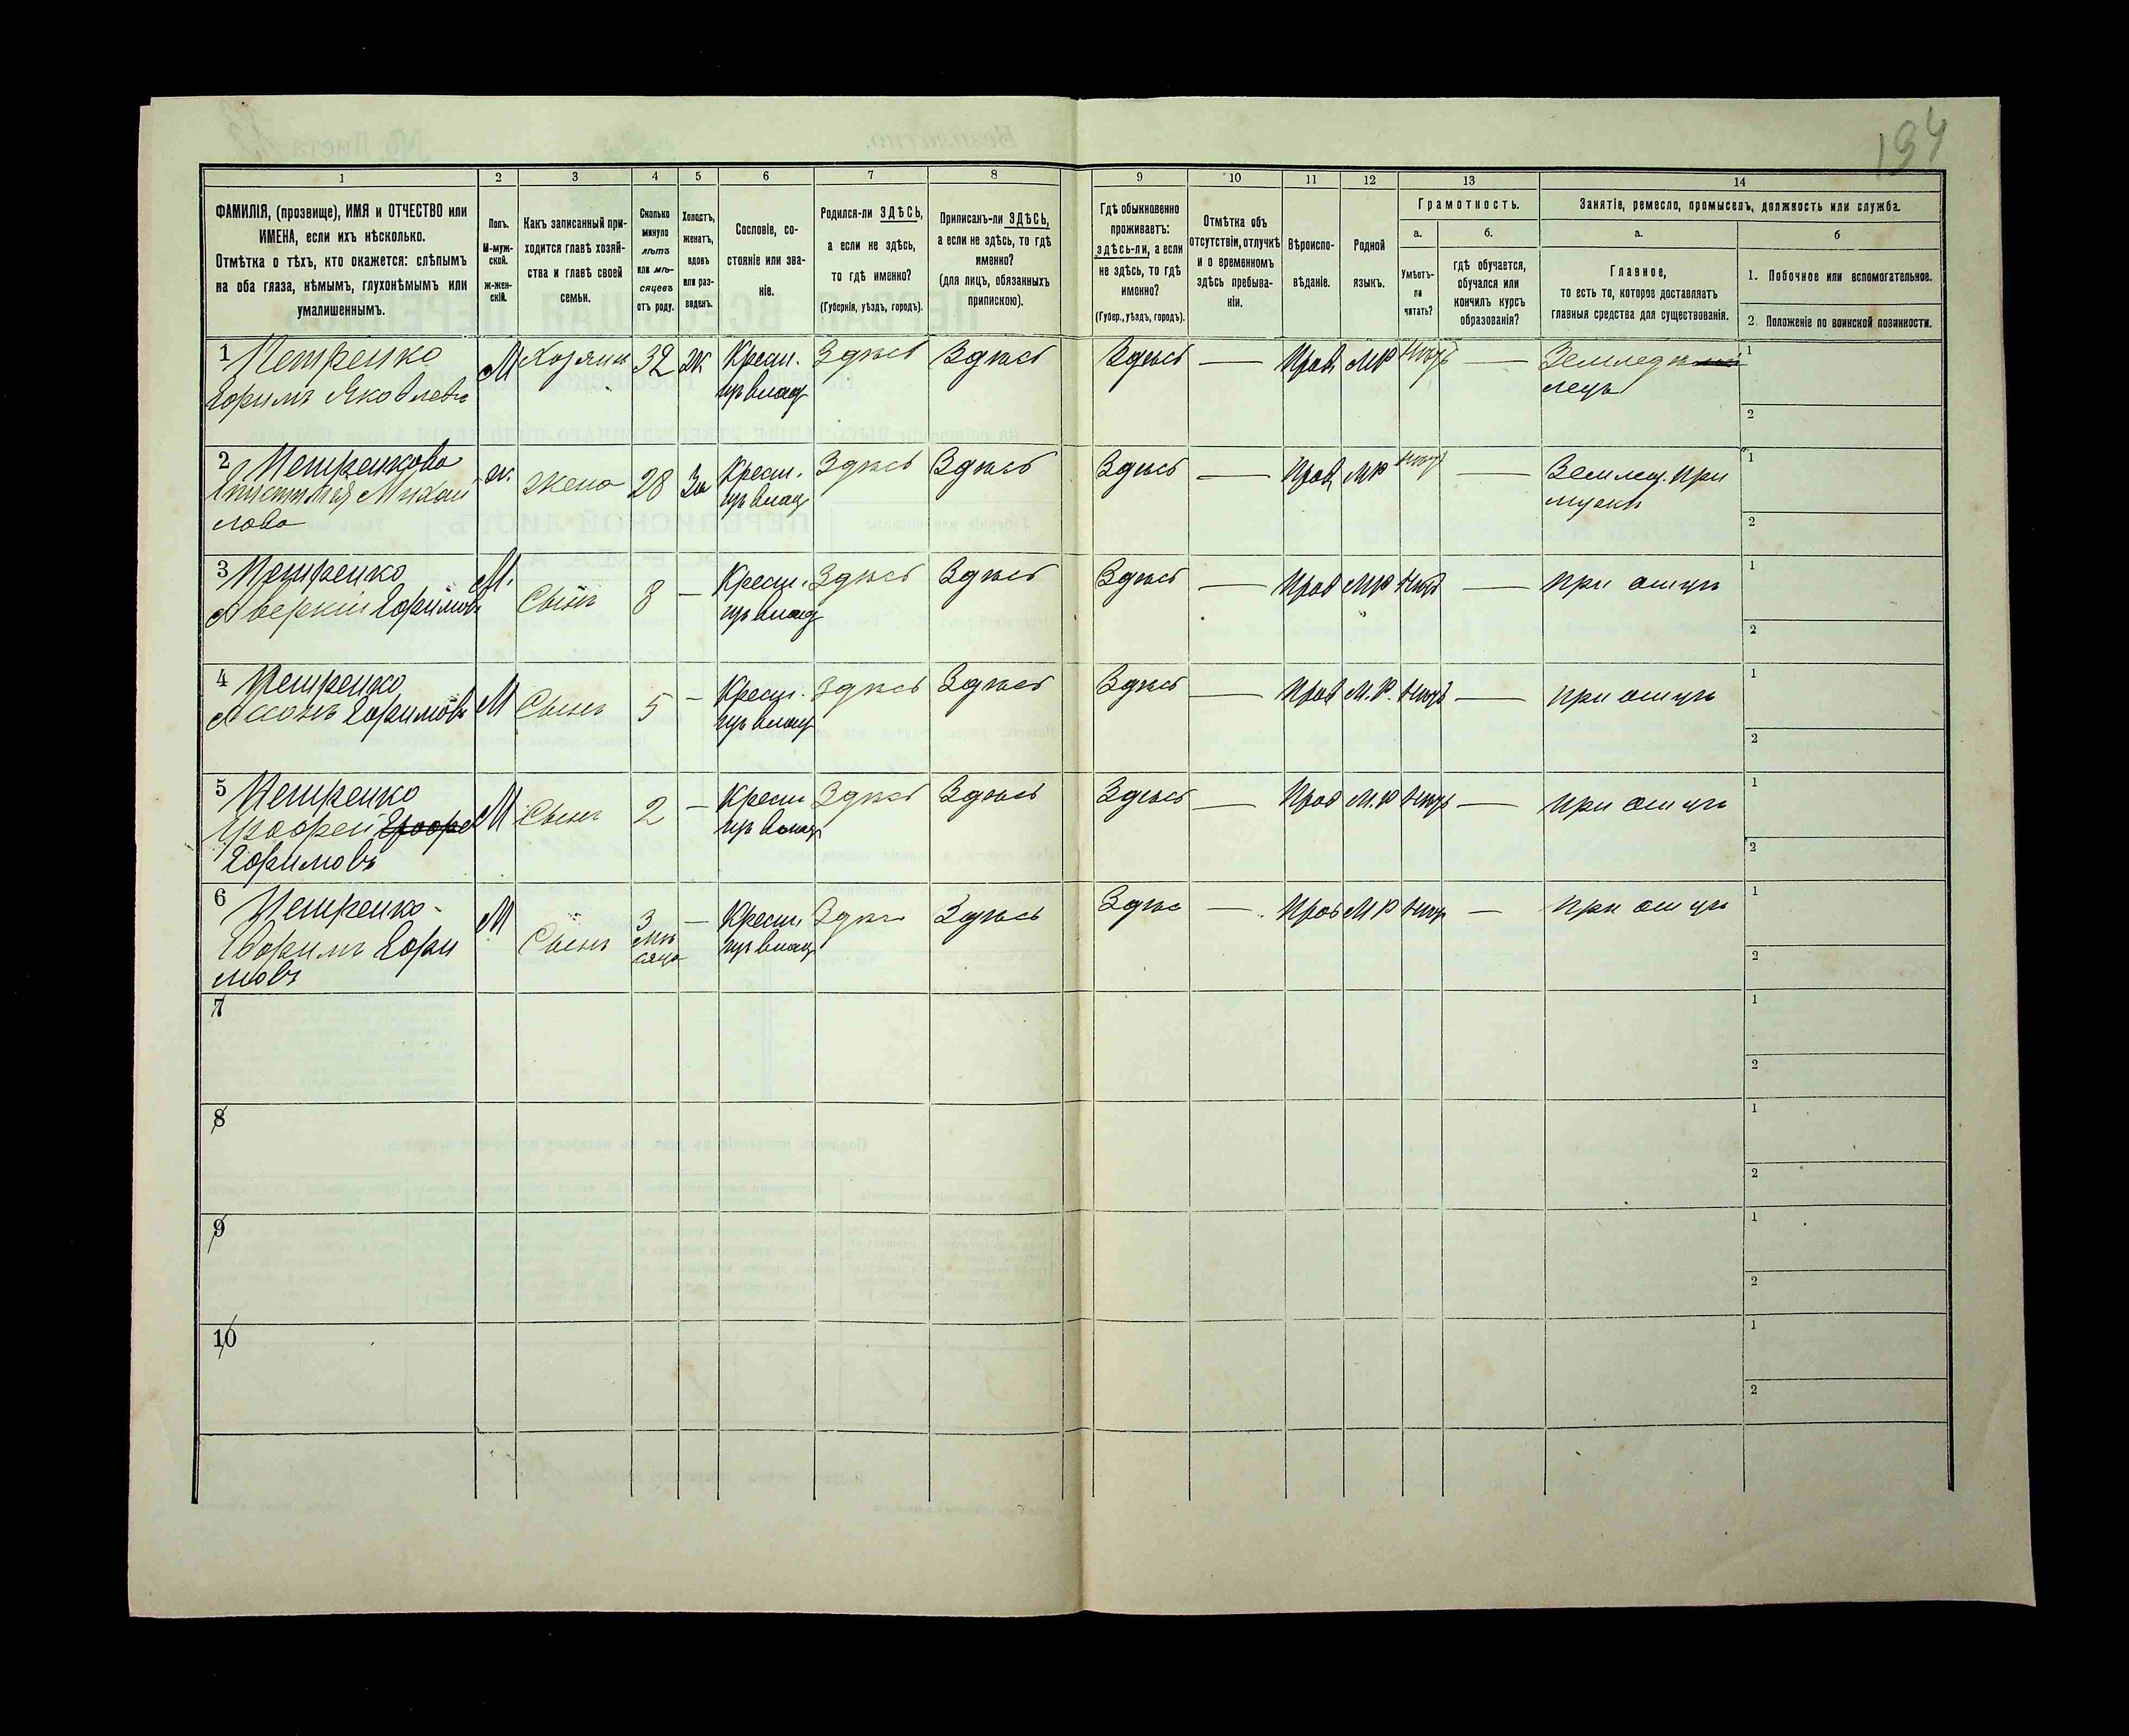 194
1 2 3 4 5 6 7 8 9 10 11 12 13 14
ФАМИЛІЯ, (прозвище), ИМЯ и ОТЧЕСТВО или
ИМЕНА, если ихъ нѣсколько.
Отмѣтка о тѣхъ, кто окажется: слѣпымъ
на оба глаза, нѣмымъ, глухонѣмымъ или
умалишеннымъ.
Полъ.
М-муж-
ской.
ж-жен-
скій.
Какъ записанный при-
ходится главѣ хозяй-
ства и главѣ своей
семьи.
Сколько
минуло
лѣтъ
или мѣ-
сяцевъ
отъ роду.
Холостъ,
женатъ,
вдовъ
или раз-
веденъ.
Сословіе, со-
стояніе или зва-
ніе.
Родился-ли ЗДѢСЬ,
а если не здѣсь,
то гдѣ именно?
(Губернія, уѣздъ, городъ).
Приписанъ-ли ЗДѢСЬ,
а если не здѣсь, то гдѣ
именно?
(для лицъ, обязанныхъ
припискою).
Гдѣ обыкновенно
проживаетъ:
здѣсь-ли, а если
не здѣсь, то гдѣ
именно?
(Губер., уѣздъ, городъ).
Отмѣтка объ
отсутствіи, отлучкѣ
и о временномъ
здѣсь пребыва-
ніи.
Вѣроиспо-
вѣданіе.
Родной
языкъ.
Грамотность.
а.
Умѣетъ-
ли
читать?
б.
гдѣ обучается,
обучался или
кончилъ курсъ
образованія?
Занятіе, ремесло, промыселъ, должность или служба.
а.
Главное,
то есть то, которое доставляетъ
главныя средства для существованія.
б
1. Побочное или вспомогательное.
2. Положеніе по воинской повинности.
1 Петренко М Хозяин 32 Ж Крест. Здѣсь Здѣсь Здѣсь — Прав МР Нѣтъ — Земледѣ 1
Яковлевъ изъ влад лецъ
2
2 Петренкова ж. жена 28 За Крест. Здѣсь Здѣсь Здѣсь — Прав МР Нѣтъ — Землед. при 1
Михаи изъ влад мужѣ
лова 2
3 Петренко М. Сынъ 8 — Крест. Здѣсь Здѣсь Здѣсь — Прав МР Нѣтъ — при отцѣ 1
Аверкій Ефимовъ изъ влад
2
4 Петренко М Сынъ 5 — Крест. Здѣсь Здѣсь Здѣсь — Прав М.Р. Нѣтъ — при отцѣ 1
Ефимовъ изъ влад
2
5 Петренко М Сынъ 2 — Крест Здѣсь Здѣсь Здѣсь — Прав М.Р Нѣтъ — при отцѣ 1
изъ влад
Ефимовъ 2
6 Петренко М Сынъ 3 — Крест. Здѣсь Здѣсь Здѣсь — Прав МР Нѣтъ — при отцѣ 1
Ефи мѣ изъ влад
мовъ сяца 2
7 1
2
8 1
2
9 1
2
10 1
2